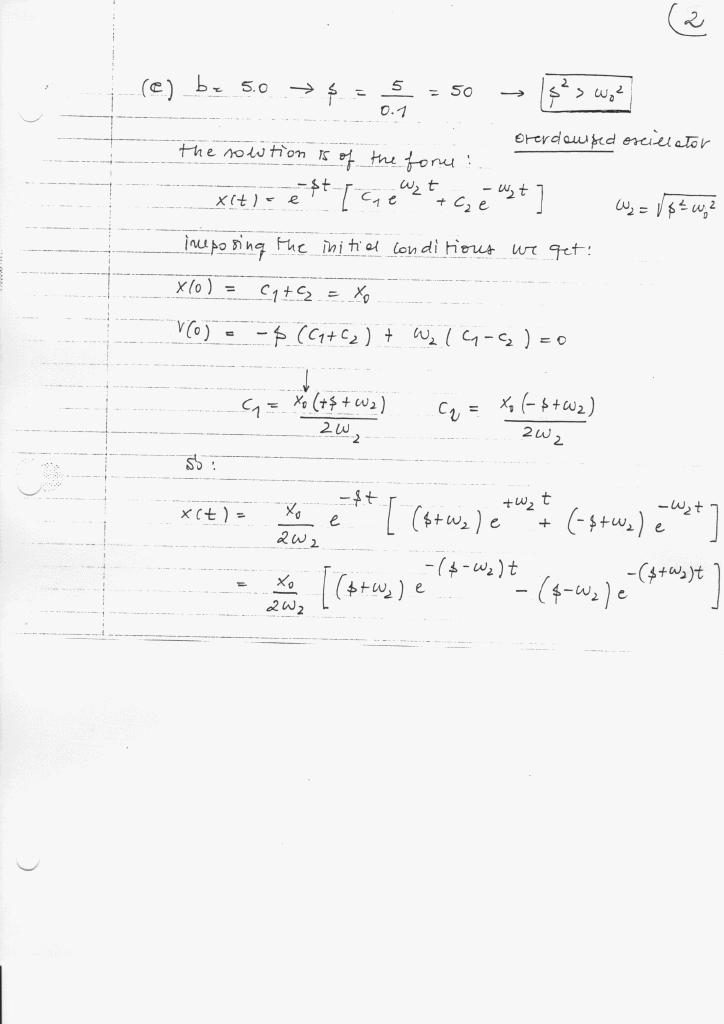 (2
(c) b = 5.0 → β = 5/0.1 = 50 → β² > ω₀²
overdamped oscillator
the solution is of the form :
x(t) = e^{-βt} [ C₁ e^{ω₂t} + C₂ e^{-ω₂t} ] ω₂ = √(β²-ω₀²)
imposing the initial conditions we get :
x(0) = C₁+C₂ = x₀
v(0) = -β (C₁+C₂) + ω₂ ( C₁-C₂ ) = 0
↓
C₁ = x₀(+β+ω₂)/2ω₂ C₂ = x₀(-β+ω₂)/2ω₂
so :
x(t) = x₀/2ω₂ e^{-βt} [ (β+ω₂) e^{+ω₂t} + (-β+ω₂) e^{-ω₂t} ]
= x₀/2ω₂ [ (β+ω₂) e^{-(β-ω₂)t} - (β-ω₂) e^{-(β+ω₂)t} ]